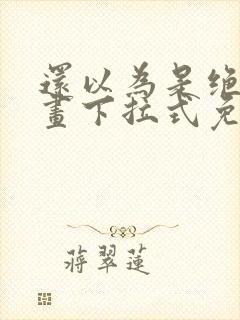 還以為是绝
畫下拉式免
蔣翠蓮